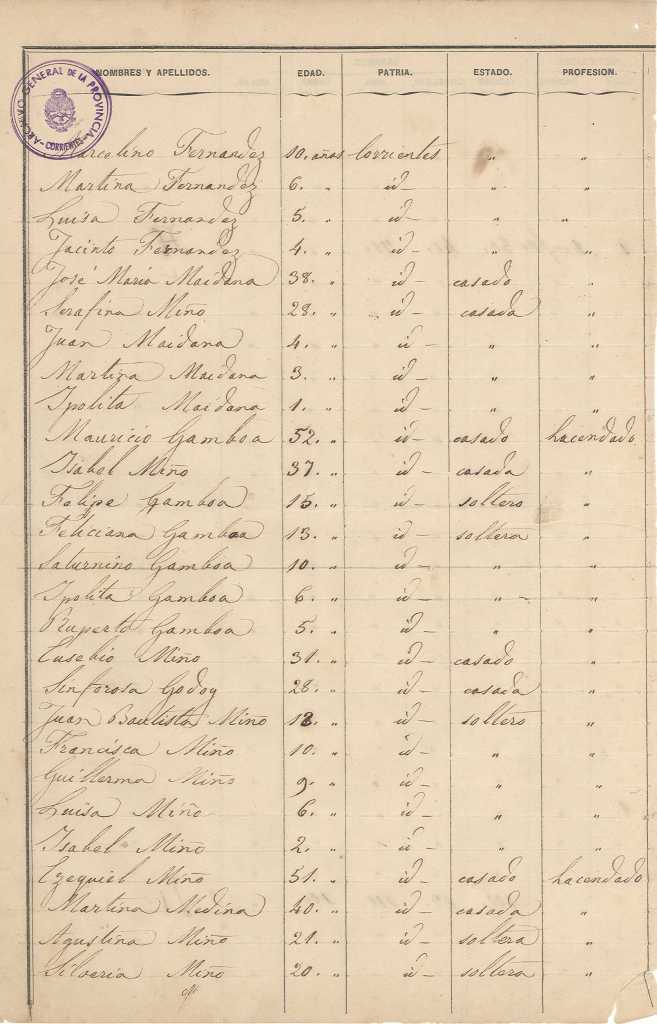 ARCHIVO GENERAL DE LA PROVINCIA
- CORRIENTES -
NOMBRES Y APELLIDOS. EDAD. PATRIA. ESTADO. PROFESION.
Marcelino Fernandez 10. años Corrientes " "
Martina Fernandez 6. " id - " "
Luisa Fernandez 5. " id - " "
Jacinto Fernandez 4. " id - " "
José Maria Maidana 38. " id - casado "
Serafina Miño 28. " id - casada "
Juan Maidana 4. " id - " "
Martina Maidana 3. " id - " "
Ipolita Maidana 1. " id - " "
Mauricio Gamboa 52. " id - casado hacendado
Isabel Miño 37. " id - casada "
Felipe Gamboa 15. " id - soltero "
Feliciana Gamboa 13. " id - soltera "
Saturnino Gamboa 10. " id - " "
Ipolita Gamboa 6. " id - " - "
Ruperto Gamboa 5. " id - " "
Eusebio Miño 31. " id - casado "
Sinforosa Godoy 28. " id - casada "
Juan Bautista Miño 12. " id - soltero "
Francisca Miño 10. " id - " "
Guillerma Miño 9. " id - " "
Luisa Miño 6. " id - " "
Isabel Miño 2. " id - " "
Ezequiel Miño 51. " id - casado hacendado
Martina Medina 40. " id - casada "
Agustina Miño 21. " id - soltera "
Silveria Miño 20. " id - soltera "